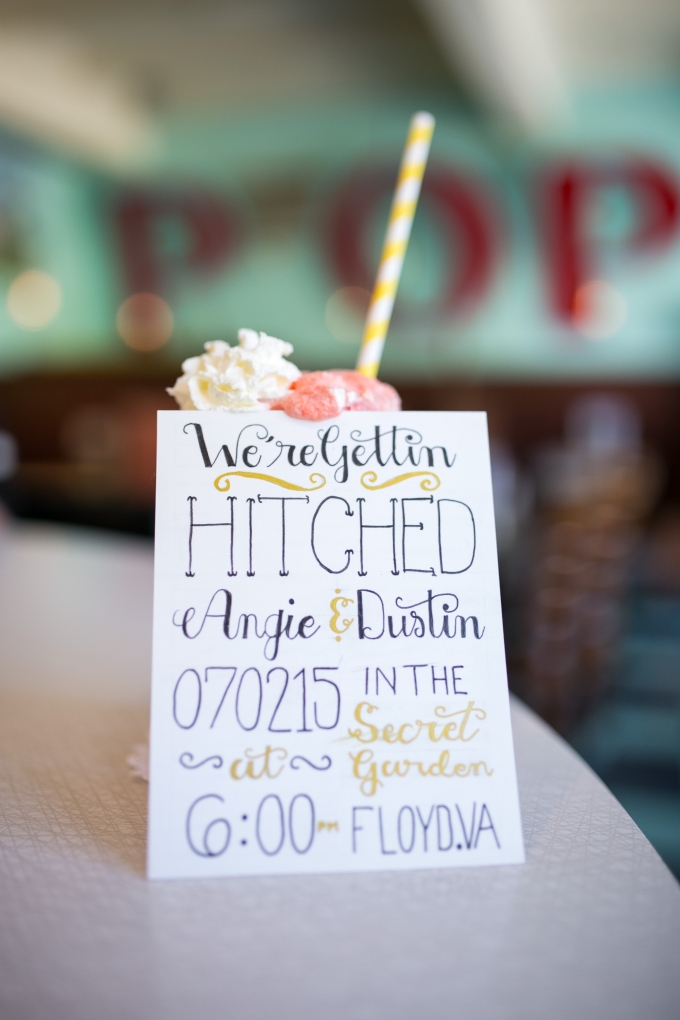 POP
We're Gettin
HITCHED
Angie & Dustin
070215
at
6:00 PM
IN THE
Secret
Garden
FLOYD.VA